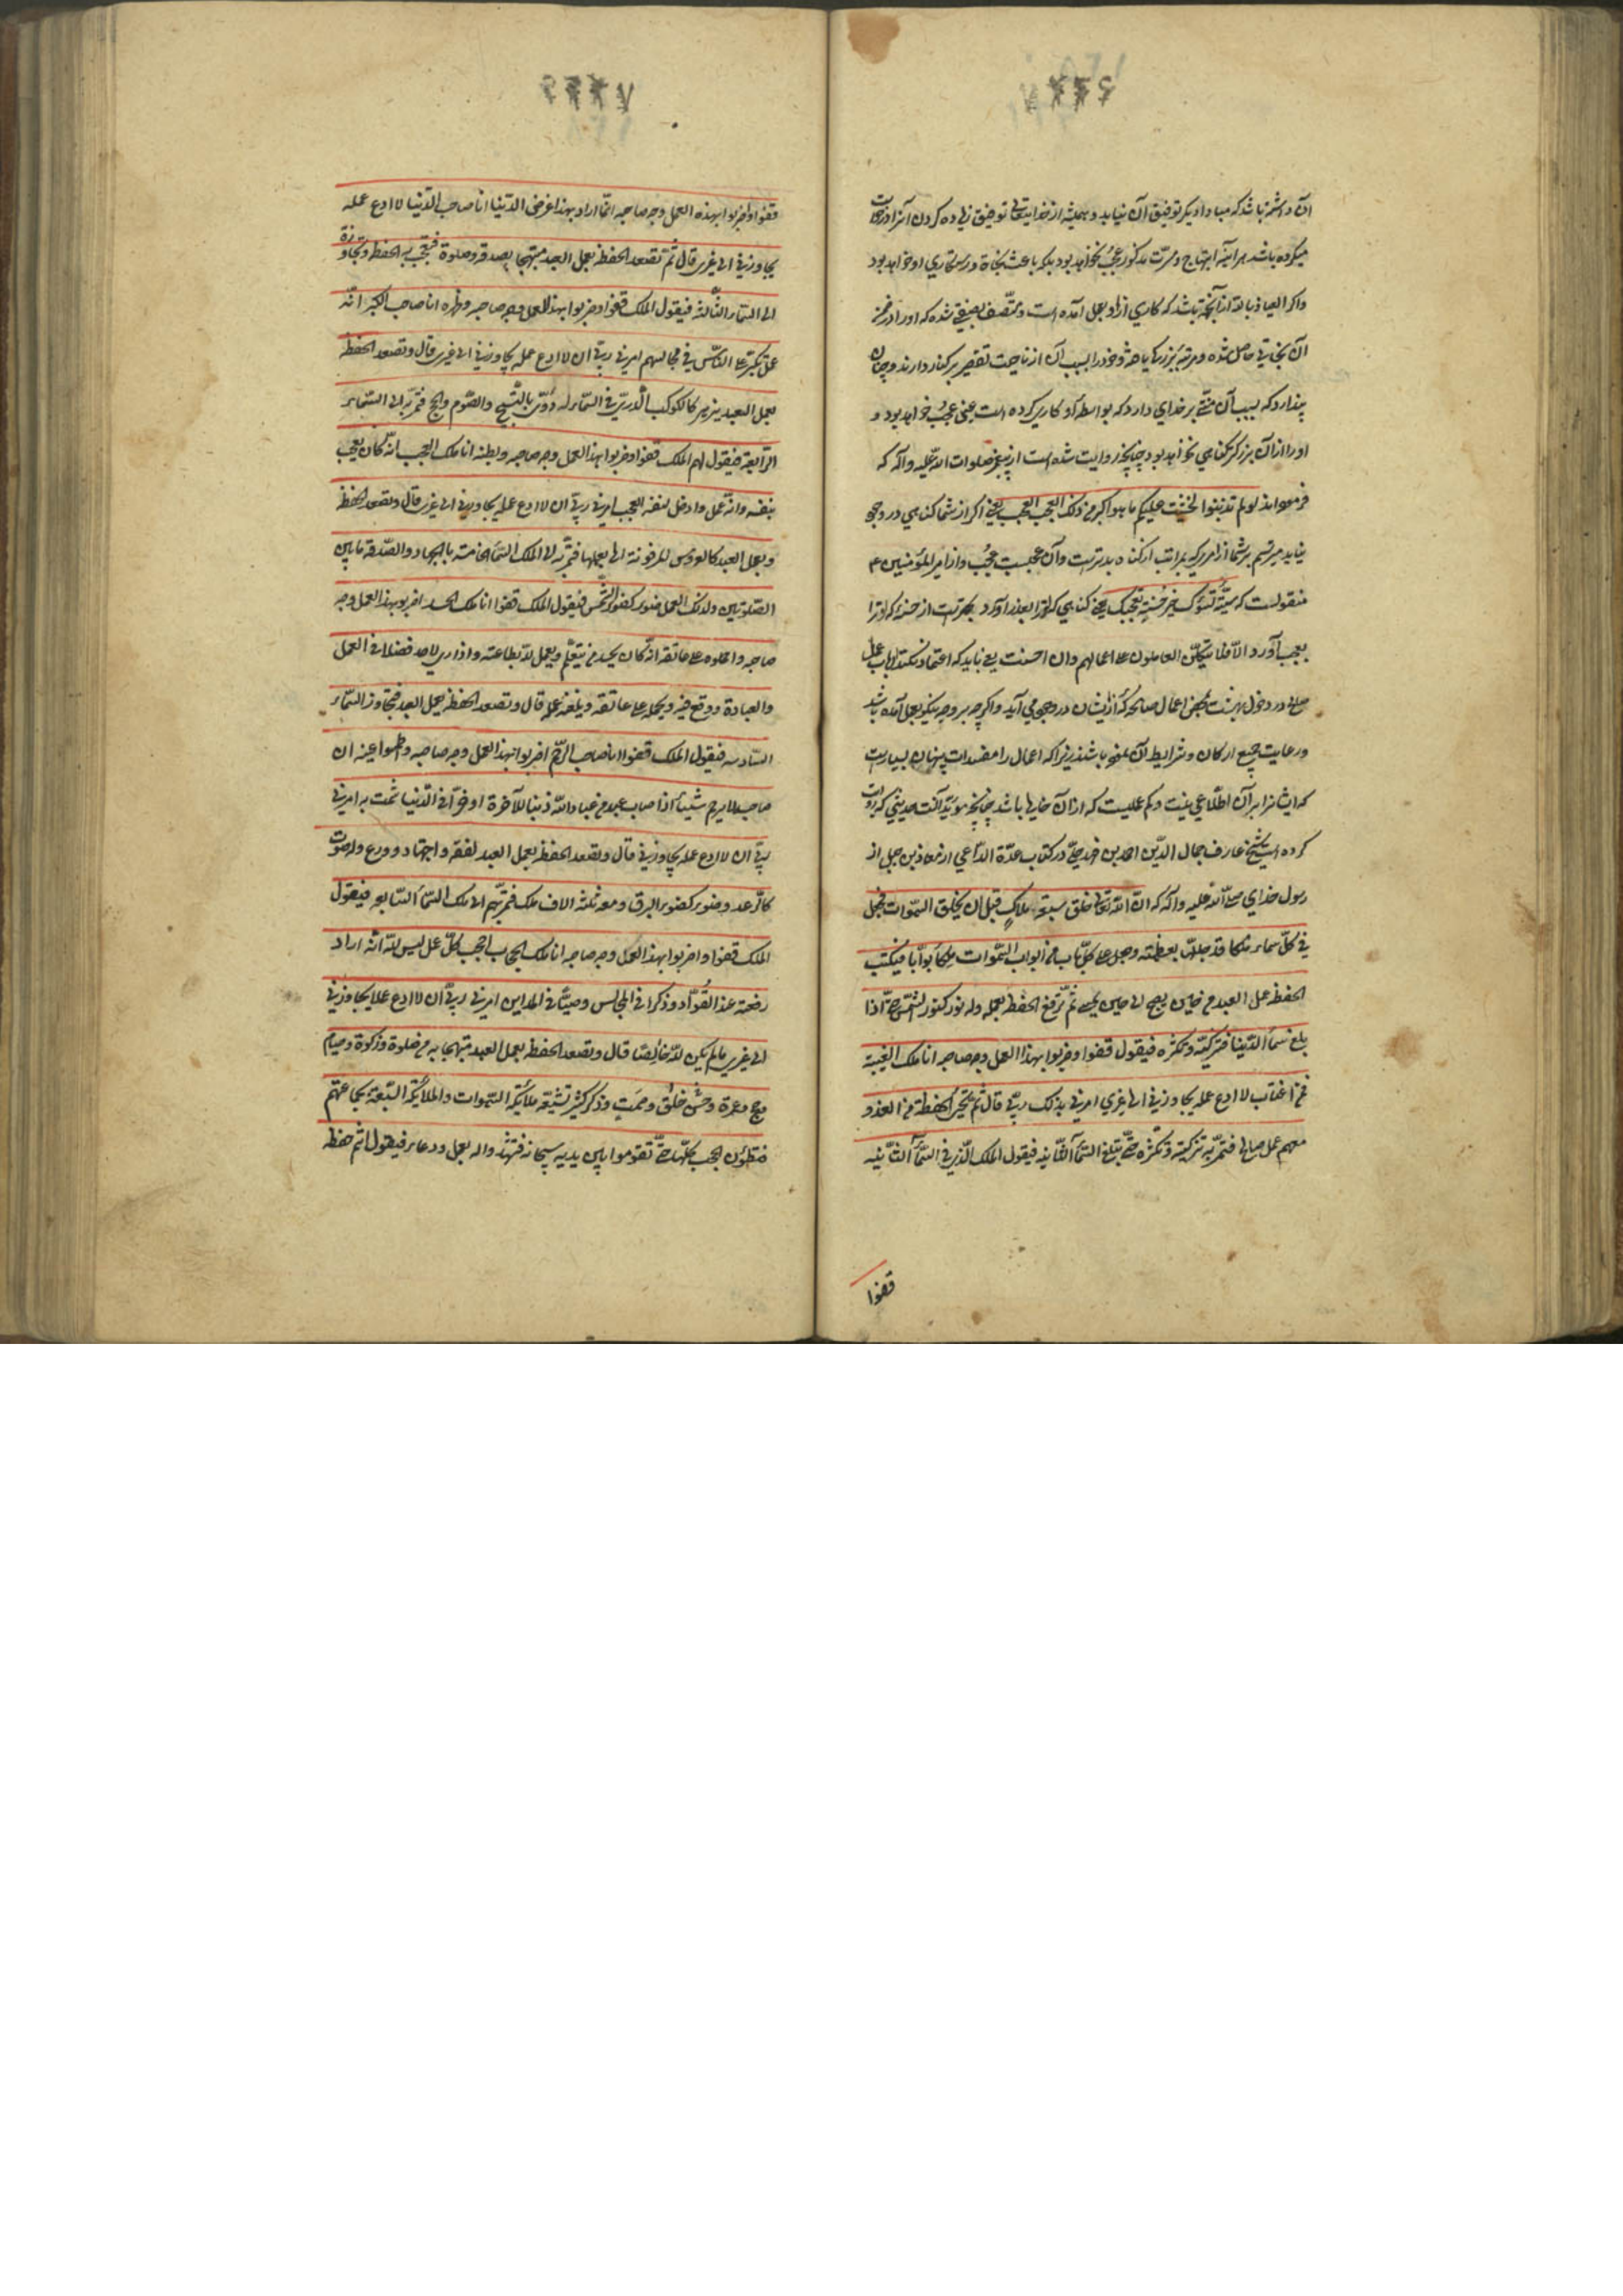 آن داشته باشد که مبادا دیگر توفیق آن نیابد و همیشه از خدایتعالی توفیق زیاده کردن آنرا درخواست
میکرده باشد هر آینه ابتهاج و مسرّت مذکور عُجُب نخواهد بود بلکه باعث نجاة و رستگاری او خواهد بود
و اکر العیاذ بالله از آنجهة باشد که کاری از او بعمل آمده است و متّصف بصفتی شده که او را در ضمن
آن نجاتی حاصل شده و مرتبهٔ بزرک یافته و خود را بسبب آن از ناحیت تقصیر بر کنار دارند و چنان
پندارد که بسبب آن منّتی بر خدای دارد که بواسطهٔ او کاری کرده است عین عجُب خواهد بود و
او را از آن بزرکتر کناهی نخواهد بود چنانچه روایت شده است از پیغمبر صلوات الله علیه و آله که
فرموده‌اند لو لم تذنبوا لخشیت علیکم ما هو اکبر من ذلک العجب العجب یعنی اکر از شما کناهی در وجود
نیاید میترسم بر شما از امری که بمراتب از کناه بدتر است و آن عجبست عجُب و از امیر المؤمنین ع
منقولست که سیّئة تسؤک خیر من حسنة تعجبک یعنی کناهی که تو را بعذر آورد بهتر است از حسنهٔ که تو را
بعجب آورد الا فلا یتّکلنّ العاملون علی اعمالهم وان احسنت یعنی نباید که اعتماد بکنند ارباب عمل
صالح در دخول بهشت بمحض اعمال صالحه که از ایشان در وجود می آید و اکر چه بر وجه نیکو بعمل آمده باشد
و رعایت جمیع ارکان و شرایط آن نموده باشند زیرا که اعمال را مفسدات پنهان بسیار است
که ایشانرا بر آن اطّلاعی نیست و کم عملیست که از آن خالی باشد چنانچه مؤیّد آنست حدیثی که روایت
کرده است شیخ عارف جمال الدّین احمد بن فهد حلّی در کتاب عدّة الدّاعی از معاذ بن جبل از
رسول خدای صلّی الله علیه و آله که انّ الله تعالی خلق سبعة املاک قبل ان یخلق السّموات فجعل
فی کلّ سماء ملکا قد جلّلها بعظمته و جعل علی کلّ باب من ابواب السّموات ملکا بوّابا فیکتب
الحفظة عمل العبد من حین یصبح الی حین یمسی ثمّ ترفع الحفظة بعمله وله نور کنور الشّمس حتّی اذا
بلغ سمآء الدّنیا فتزکّیه و تکثّره فیقول قفوا و ضربوا بهذا العمل وجه صاحبه انا ملک الغیبة
فمن اغتاب لا ادع عمله یجاوزنی الی غیری امرنی بذلک ربّی قال ثمّ تجیئ الحفظة من الغد و
معهم عمل صالح فتمرّ به تزکّیه و تکثّره حتّی تبلغ السّمآء الثّانیة فیقول الملک الّذی فی السّمآء الثّانیه
قفوا
قفوا و اضربوا بهذه العمل وجه صاحبه انّما اراد بهذا عرض الدّنیا انا صاحب الدّنیا لا ادع عمله
یجاوزنی الی غیری قال ثمّ تصعد الحفظة بعمل العبد مبتهجا بصدقة و صلوة فتعجب به الحفظة و تجاوزه
الی السّماء الثّالثه فیقول الملک قفوا و ضربوا بهذا العمل وجه صاحبه و ظهره انا صاحب الکبر انّه
عمل تکبّر علی النّاس فی مجالسهم امرنی ربّی ان لا ادع عمله یجاوزنی الی غیری قال و تصعد الحفظة
بعمل العبد یزهر کالکوکب الّدری فی السّماء له دویّ بالتّسبیح و الصّوم و الحج فتمرّ به الی السّماء
الرّابعة فیقول لهم الملک قفوا و ضربوا بهذا العمل وجه صاحبه و بطنه انا ملک العجب انّه کان یعجب
بنفسه و انّه عمل و ادخل نفسه العجب امرنی ربّی ان لا ادع عمله یجاوزنی الی غیری قال و تصعد الحفظة
و بعمل العبد کالعروس المزفوفة الی بعلها فتمرّ به الی الملک السّمآء الخامسة بالجهاد و الصّدقة ما بین
الصّلوتین و لذلک العمل ضوء کضوء الشّمس فیقول الملک قفوا انا ملک الحسد اضربوا بهذا العمل وجه
صاحبه و احملوه علی عاتقه انّه کان یحسد من یتعلّم و یعمل لله بطاعته و اذا رای لاحد فضلا فی العمل
و العبادة و وقع فیه و یحمله علی عاتقه و یلعنه عمله قال و تصعد الحفظة بعمل العبد فتجاوز السّماء
السّادسه فیقول الملک قفوا انا صاحب الرّحمة اضربوا بهذا العمل وجه صاحبه و اطمسوا عینه ان
صاحبه لا یرحم شیئا اذا صاب عبد من عباد الله ذنبا للآخرة او ضرّا فی الدّنیا شمت به امرنی
ربّی ان لا ادع عمله یجاوزنی قال و تصعد الحفظة بعمل العبد بفقه و اجتهاد و ورع وله صوت
کالرّعد و ضوء کضوء البرق و معه ثلثة الاف ملک فتمرّ بهم الی ملک السّمآء السّابعه فیقول
الملک قفوا و اضربوا بهذا العمل وجه صاحبه انا ملک الحجاب احجب کلّ عمل لیس لله انّه اراد
رفعة عند القُوّاد و ذکرا فی المجالس و صیتا فی المداین امرنی ربّی ان لا ادع عملا یجاوزنی
الی غیری ما لم یکن لله خالصًا قال و تصعد الحفظة بعمل العبد مبتهجا به من صلوة و زکوة و صیام
و حج و عمرة و حسن خلق و صمت و ذکر کثیر تشیّعه ملائکة السّموات و الملائکة السّبعة بجماعتهم
فیطؤن الحجب کلّها حتّی تقوموا بین یدیه سبحانه فتشهدوا له بعمل و دعاء فیقول انتم حفظة